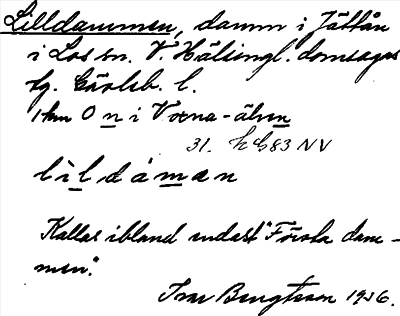 Lilldammen, damm i Jättån
i Los sn. V. Hälsingl. domsagas
tg. Gävleb. l.
1 km O n i Voxna-älven
31. h G83 NV
lìldáman
Kallas ibland endast "Första dam-
men".
Ivar Bengtsson 1936.